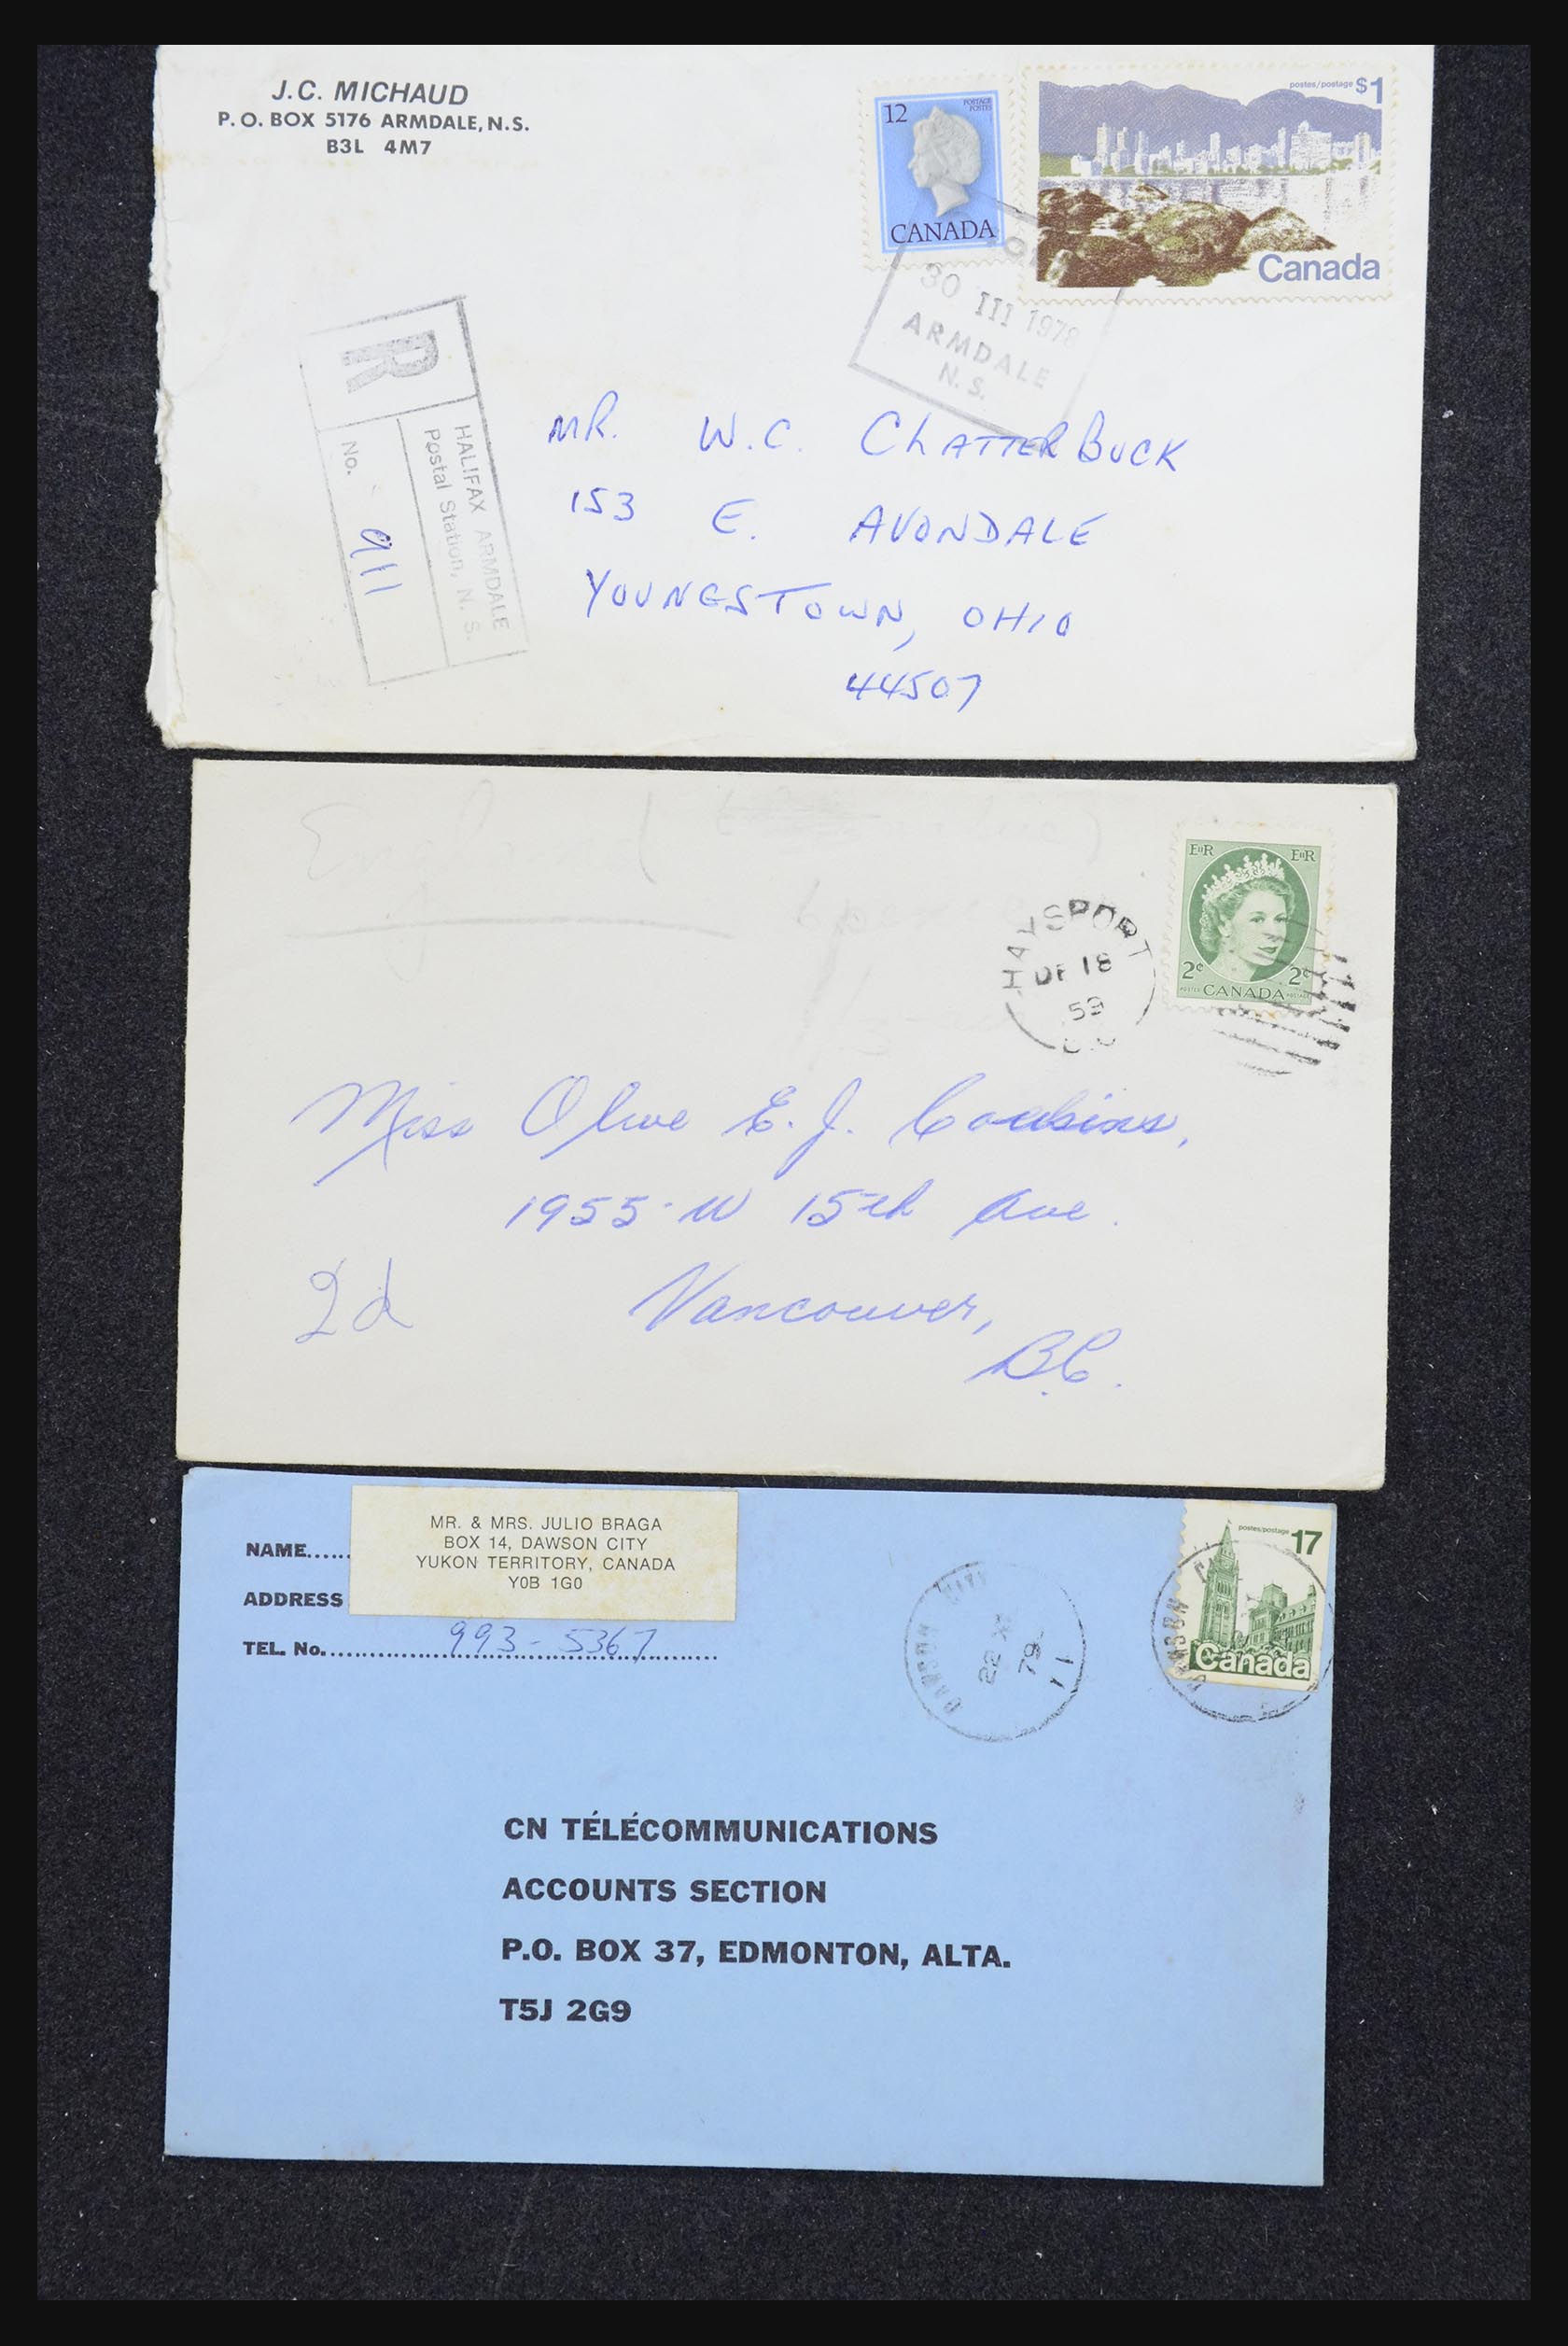 J.C. MICHAUD
P.O. BOX 5176 ARMDALE, N.S.
B3L 4M7
12
POSTAGE
POSTES
CANADA
postes/postage $1
Canada
30 III 1978
ARMDALE
N.S.
R
HALIFAX ARMDALE
Postal Station, N. S.
No. 911
MR. W.C. CHATTERBUCK
153 E. AVONDALE
YOUNGSTOWN, OHIO
44507
England
EIIR EIIR
2¢ 2¢
POSTES CANADA POSTAGE
HAYSPORT
DE 18
59
Miss Olive E. J. Cousins,
1955 W 15th Ave.
2d
Vancouver,
B.C.
MR. & MRS. JULIO BRAGA
BOX 14, DAWSON CITY
YUKON TERRITORY, CANADA
Y0B 1G0
NAME......
ADDRESS
TEL. No. 993-5367
DAWSON CITY
22 XI
79
postes/postage 17
Canada
DAWSON
CN TÉLÉCOMMUNICATIONS
ACCOUNTS SECTION
P.O. BOX 37, EDMONTON, ALTA.
T5J 2G9